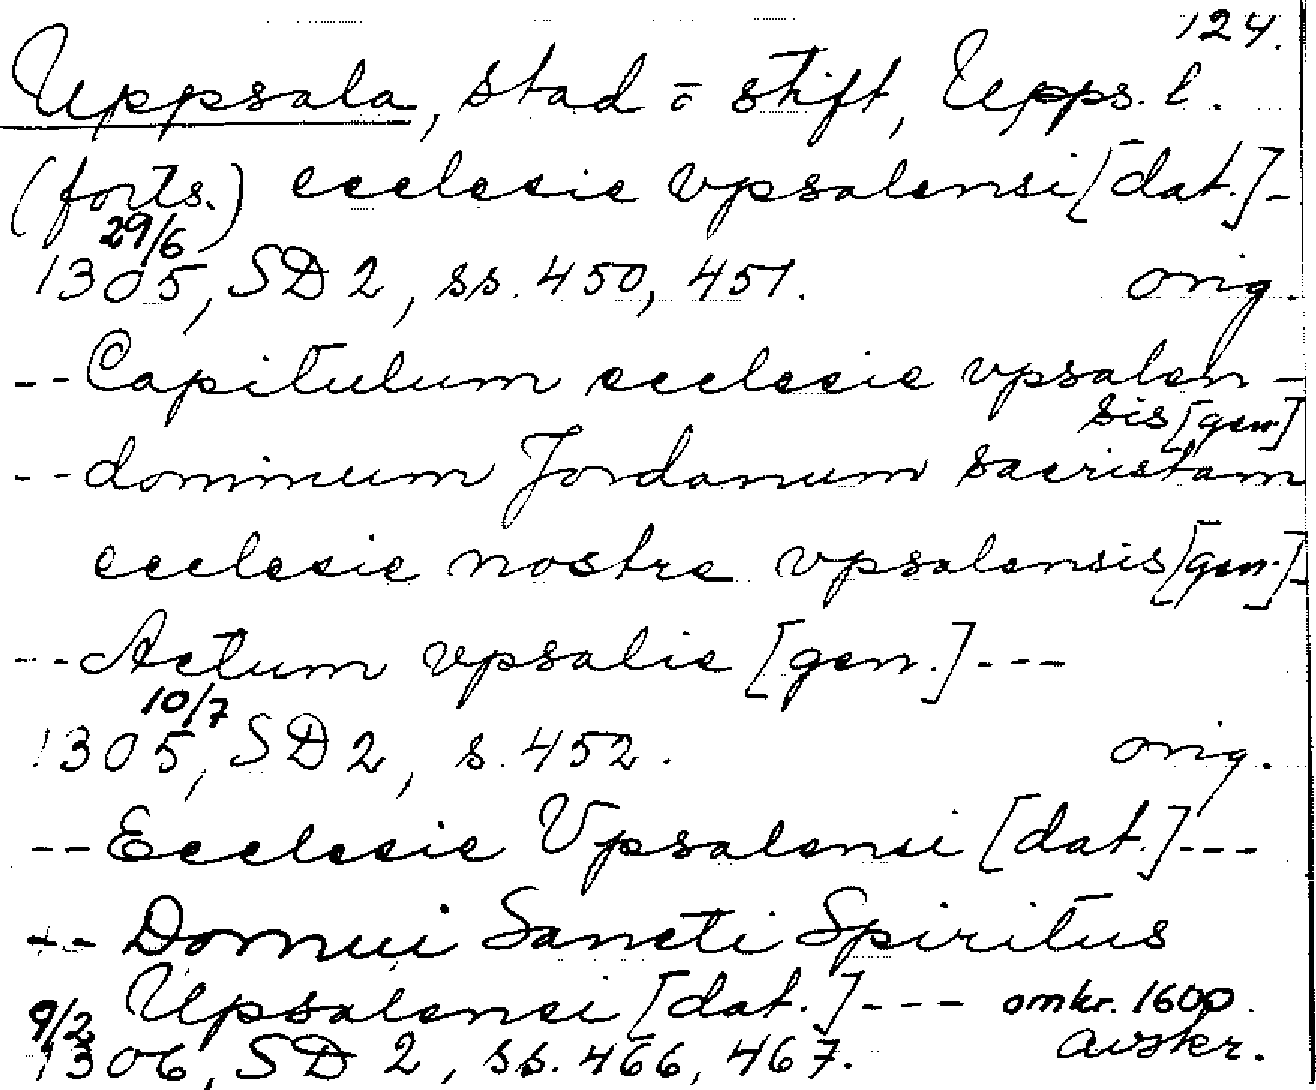 124.
Uppsala, stad o stift, Upps. l.
(forts.) ecclesie vpsalensi [dat.]-
29/6
1305, SD 2, ss. 450, 451. orig.
-- Capitulum ecclesie vpsalen-
sis [gen.]
-- dominum Jordanum sacristam
ecclesie nostre vpsalensis [gen.]-
-- Actum vpsalie [gen.] ---
10/7
1305, SD 2, s. 452. orig.
-- Ecclesie Vpsalensi [dat.] ---
-- Domui Sancti Spiritus
Upsalensi [dat.] --- omkr. 1600.
9/2 avskr.
1306, SD 2, ss. 466, 467.